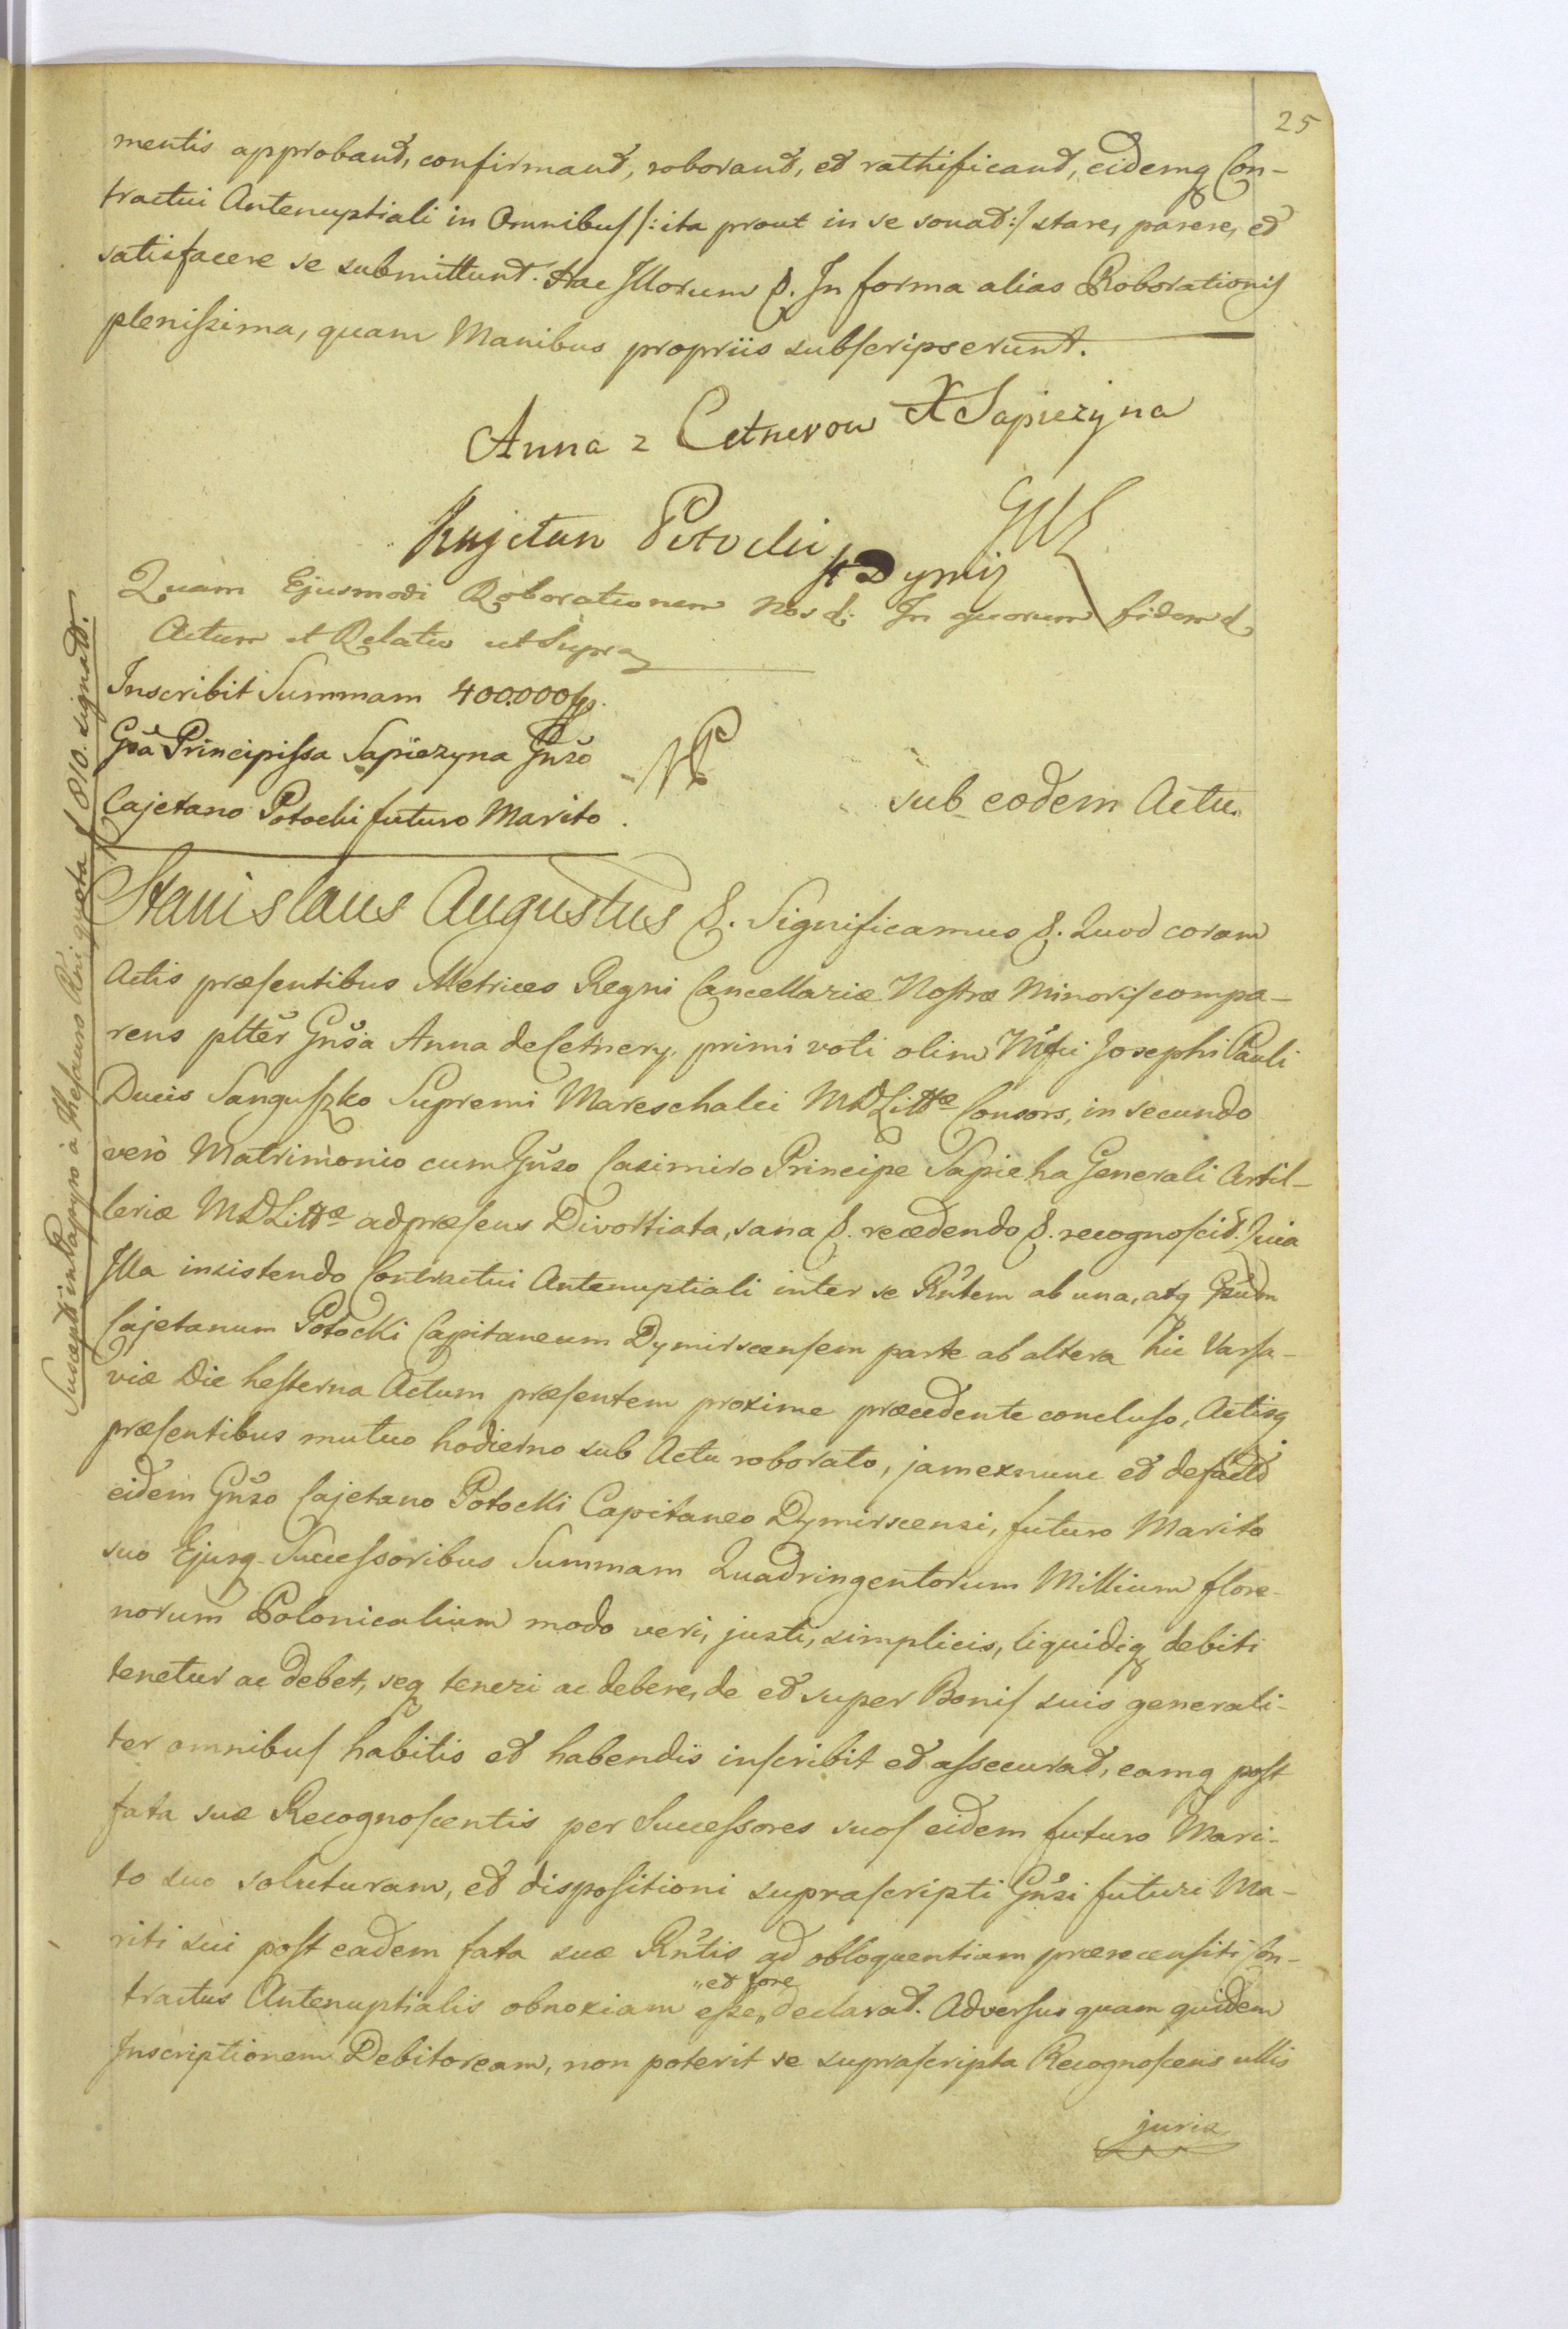 25
mentis approband, confirmand, roborand, et rathificand, eidemq Con-
tractui Antenuptiali in Omnibus /: ita prout in se sonat :/ stare, parere, et
satisfacere se submittunt. Hac Illorum &. In forma alias Roborationis
plenissima, quam Manibus propriis subscripserunt.
Anna z Cetnerow X Sapiezyna
Kajetan Potocki St Dymij
Quam Ejusmodi Roborationem Nos &. In quorum fidem &
Actum et Relatio ut Supra
Inscribit Summam 400.000 fp.
Gsa Principissa Sapiezyna Gnso
Cajetano Potocki futuro Marito.
sub eodem Actu.
Suscepta in Papyro à Thesauro Rni quota f 810. signata.
Stanislaus Augustus &. Significamus &. Quod coram
Actis præsentibus Metrices Regni Cancellariæ Nostræ Minoris compa-
rens pltter Gnsa Anna de Cetnery, primi voti olim Mfci Josephi Pauli
Ducis Sanguszko Supremi Mareschalci MDLittæ Consors, in secundo
verò Matrimonio cum Gnso Casimiro Principe Sapieha Generali Artil-
leriæ MDLittæ ad præsens Divortiata, sana &. recedendo &. recognoscit. Quia
Illa insistendo Contractui Antenuptiali inter se Rntem ab una, atq Gsum
Cajetanum Potocki Capitaneum Dymirscensem parte ab altera hic Varsa-
viæ Die hesterna Actum præsentem proxime præcedente concluso, Actisq
præsentibus mutuo hodierno sub Actu roborato, jam exnunc et defacto
eidem Gnso Cajetano Potocki Capitaneo Dymirscensi, futuro Marito
suo Ejusq Successoribus Summam Quadringentorum Millium flore-
norum Polonicalium modo veri, justi, simplicis, liquidiq debiti
tenetur ac debet, seq teneri ac debere, de et super Bonis suis generali-
ter omnibus habitis et habendis inscribit et assecurat, eamq post
fata suæ Recognoscentis per Successores suos eidem futuro Mari-
to suo soluturam, et dispositioni suprascripti Gnsi futuri Ma-
riti sui post eadem fata suæ Rntis ad obloquentiam prærecensiti Con-
tractus Antenuptialis obnoxiam esse „et fore„ declarat. Adversus quam quidem
Inscriptionem Debitoream, non poterit se suprascripta Recognoscens ullis
juris